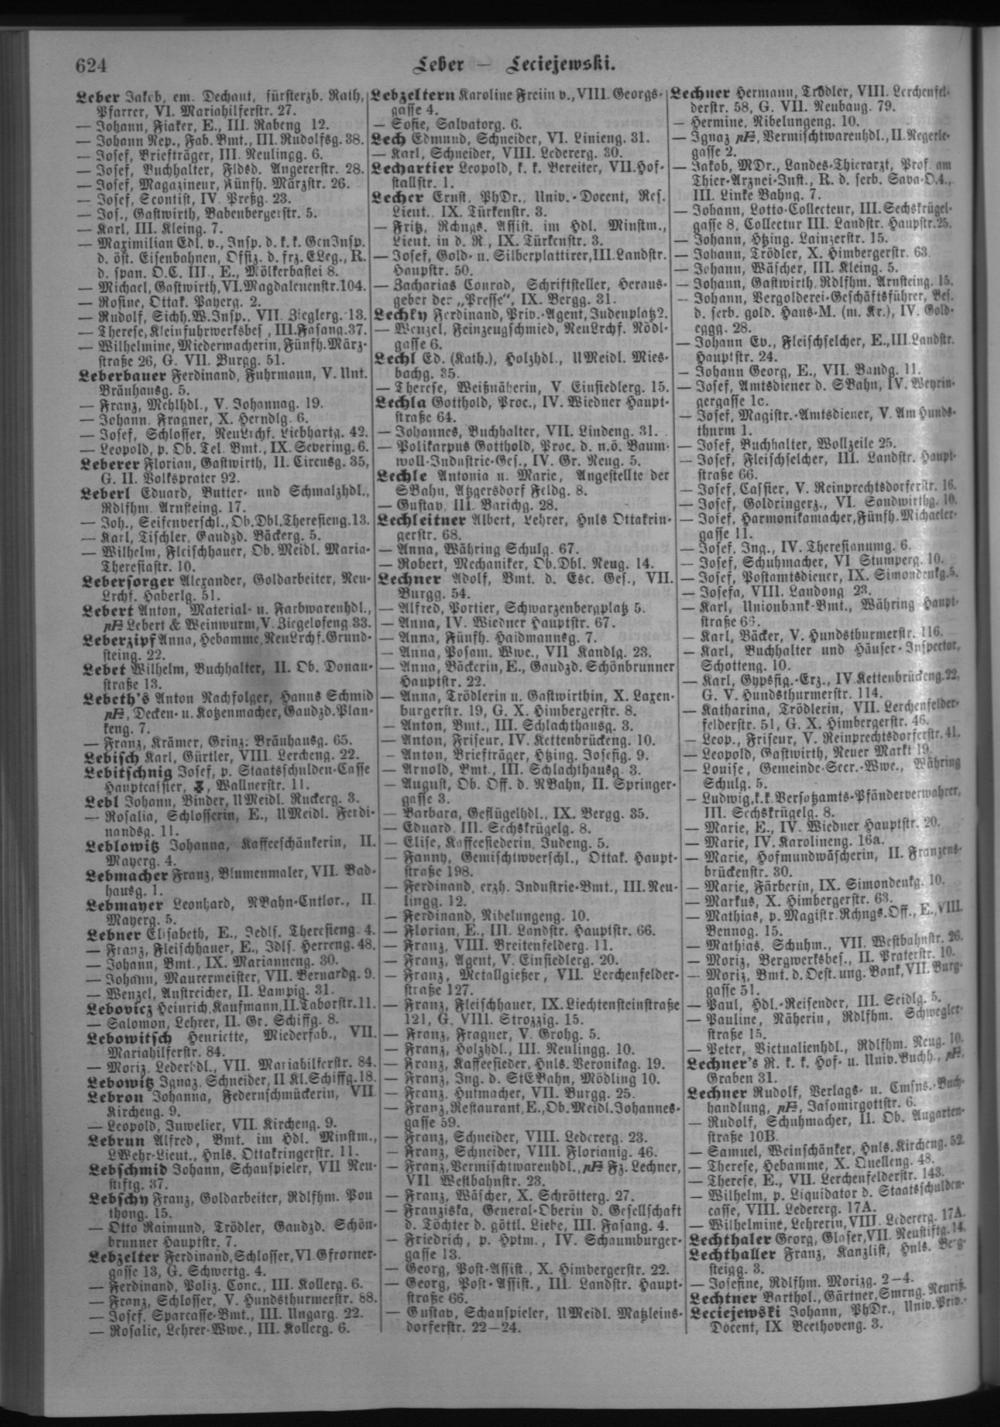 624
Leber — Leciejewski.
Leber Jakob, em. Dechant, fürsterzb. Rath,
Pfarrer, VI. Mariahilferstr. 27.
— Johann, Fiaker, E., III. Rabeng 12.
— Johann Nep., Fab. Bmt., III. Rudolfsg. 38.
— Josef, Briefträger, III. Reulingg. 6.
— Josef, Buchhalter, Fldsd. Angererstr. 28.
— Josef, Magazineur, Fünfh. Märzstr. 26.
— Josef, Scontist, IV. Preßg. 23.
— Jos., Gastwirth, Babenbergerstr. 5.
— Karl, III. Kleing. 7.
— Maximilian Edl. v., Insp. d. k. k. GenInsp.
d. öst. Eisenbahnen, Offiz. d. frz. ELeg., R.
d. span. O.C. III., E., Mölkerbastei 8.
— Michael, Gastwirth, VI. Magdalenenstr. 104.
— Rosine, Ottak. Payerg. 2.
— Rudolf, Sichh. W. Insp., VII. Zieglerg. 13.
— Therese, Kleinfuhrwerksbes., III. Fasang. 37.
— Wilhelmine, Miedermacherin, Fünfh. März-
straße 26, G. VII. Burgg. 51.
Leberbauer Ferdinand, Fuhrmann, V. Unt.
Bräuhausg. 5.
— Franz, Mehlhdl., V. Johannag. 19.
— Johann, Fragner, X. Herndlg. 6.
— Josef, Schlosser, NeuLrchf. Liebhartg. 42.
— Leopold, p. Ob. Tel. Bmt., IX. Severing. 6.
Leberer Florian, Gastwirth, II. Circusg. 35,
G. II. Volksprater 92.
Leberl Eduard, Butter- und Schmalzhdl.,
Rdlfhm. Arnsteing. 17.
— Joh., Seifenverschl., Ob. Dbl. Theresieng. 13.
— Karl, Tischler, Gaudzd. Bäckerg. 5.
— Wilhelm, Fleischhauer, Ob. Meidl. Maria-
Theresiastr. 10.
Lebersorger Alexander, Goldarbeiter, Neu-
Lrchf. Haberlg. 51.
Lebert Anton, Material- u. Farbwarenhdl.,
Lebert & Weinwurm, V. Ziegelofeng 33.
Leberzipf Anna, Hebamme, NeuLrchf. Grund-
steing. 22.
Lebet Wilhelm, Buchhalter, II. Ob. Donau-
straße 13.
Lebeth's Anton Nachfolger, Hanns Schmid
Decken- u. Kotzenmacher, Gaudzd. Plan-
keng. 7.
— Franz, Krämer, Grinz. Bräuhausg. 65.
Lebisch Karl, Gürtler, VIII. Lercheng. 22.
Lebitschnig Josef, p. Staatsschulden-Casse
Hauptcassier, Wallnerstr. 11.
Lebl Johann, Binder, UMeidl. Ruckerg. 3.
— Rosalia, Schlosserin, E., UMeidl. Ferdi-
nandsg. 11.
Leblowitz Johanna, Kaffeeschänkerin, II.
Mayerg. 4.
Lebmacher Franz, Blumenmaler, VII. Bad-
hausg. 1.
Lebmayer Leonhard, NBahn-Cntlor., II
Mayerg. 5.
Lebner Elisabeth, E., Jedls. Theresieng. 4.
— Franz, Fleischhauer, E., Jdls. Herreng. 48.
— Johann, Bmt., IX. Marianneng. 30.
— Johann, Maurermeister, VII. Bernardg. 9.
— Wenzel, Anstreicher, II. Lampig. 31.
Lebovicz Heinrich, Kaufmann, II. Taborstr. 11.
— Salomon, Lehrer, II. Gr. Schiffg. 8.
Lebowitsch Henriette, Miederfab., VII.
Mariahilferstr. 84.
— Moriz, Lederhdl., VII. Mariahilferstr. 84.
Lebowitz Ignaz, Schneider, II Kl. Schiffg. 18.
Lebron Johanna, Federnschmückerin, VII
Kircheng. 9.
— Leopold, Juwelier, VII. Kircheng. 9.
Lebrun Alfred, Bmt. im Hdl. Minstm.,
LWehr-Lieut., Hnls. Ottakringerstr. 11.
Lebschmid Johann, Schauspieler, VII Neu-
stiftg. 37.
Lebschy Franz, Goldarbeiter, Rdlfhm. Pou
thong. 15.
— Otto Raimund, Trödler, Gaudzd. Schön-
brunner Hauptstr. 7.
Lebzelter Ferdinand, Schlosser, VI Gfrorner-
gasse 13, G. Schwertg. 4.
— Ferdinand, Poliz. Conc., III. Kollerg. 6.
— Franz, Schlosser, V. Hundsthurmerstr. 88.
— Josef, Sparcasse-Bmt., III. Ungarg. 22.
— Rosalie, Lehrer-Wwe., III. Kollerg. 6.
Lebzeltern Karoline Freiin v., VIII. Georgs-
gasse 4.
— Sofie, Salvatorg. 6.
Lech Edmund, Schneider, VI. Linieng. 31.
— Karl, Schneider, VIII. Ledererg. 30.
Lechartier Leopold, k. k. Bereiter, VII. Hof-
stallstr. 1.
Lecher Ernst, PhDr., Univ.-Docent, Res.
Lieut., IX. Türkenstr. 3.
— Fritz, Rchngs. Assist. im Hdl. Minstm.,
Lieut. in d. R., IX. Türkenstr. 3.
— Josef, Gold- u. Silberplattirer, III. Landstr.
Hauptstr. 50.
— Zacharias Conrad, Schriftsteller, Heraus-
geber der „Presse“, IX. Bergg. 31.
Lechky Ferdinand, Priv.-Agent, Judenplatz 2.
— Wenzel, Feinzeugschmied, NeuLrchf. Rödl-
gasse 6.
Lechl Ed. (Kath.), Holzhdl., UMeidl. Mies-
bachg. 35.
— Therese, Weißnäherin, V. Einsiedlerg. 15.
Lechla Gotthold, Proc., IV. Wiedner Haupt-
straße 64.
— Johannes, Buchhalter, VII. Lindeng. 31.
— Polikarpus Gotthold, Proc. d. n.ö. Baum-
woll-Industrie-Ges., IV. Gr. Neug. 5.
Lechle Antonia u. Marie, Angestellte der
SBahn, Atzgersdorf Feldg. 8.
— Gustav, III. Barichg. 28.
Lechleitner Albert, Lehrer, Hnls Ottakrin-
gerstr. 68.
— Anna, Währing Schulg. 67.
— Robert, Mechaniker, Ob. Dbl. Neug. 14.
Lechner Adolf, Bmt. d. Esc. Ges., VII.
Burgg. 54.
— Alfred, Portier, Schwarzenbergplatz 5.
— Anna, IV. Wiedner Hauptstr. 67.
— Anna, Fünfh. Haidmannsg. 7.
— Anna, Posam. Wwe., VII Kandlg. 23.
— Anna, Bäckerin, E., Gaudzd. Schönbrunner
Hauptstr. 22.
— Anna, Trödlerin u. Gastwirthin, X. Laxen-
burgerstr. 19, G. X. Himbergerstr. 8.
— Anton, Bmt., III. Schlachthausg. 3.
— Anton, Friseur, IV. Kettenbrückeng. 10.
— Anton, Briefträger, Htzing. Josefig. 9.
— Arnold, Bmt., III. Schlachthausg. 3.
— August, Ob. Off. d. NBahn, II. Springer-
gasse 3.
— Barbara, Geflügelhdl., IX. Bergg. 35.
— Eduard, III. Sechskrügelg. 8.
— Elise, Kaffeesiederin, Judeng. 5.
— Fanny, Gemischtwverschl., Ottak. Haupt-
straße 198.
— Ferdinand, erzh. Industrie-Bmt., III. Neu-
lingg. 12.
— Ferdinand, Nibelungeng. 10.
— Florian, E., III. Landstr. Hauptstr. 66.
— Franz, VIII. Breitenfelderg. 11.
— Franz, Agent, V. Einsiedlerg. 20.
— Franz, Metallgießer, VII. Lerchenfelder-
straße 127.
— Franz, Fleischhauer, IX. Liechtensteinstraße
121, G. VIII. Strozzig. 15.
— Franz, Fragner, V. Grohg. 5.
— Franz, Holzhdl., III. Reulingg. 10.
— Franz, Kaffeesieder, Hnls. Veronikag. 19.
— Franz, Ing. d. StEBahn, Mödling 10.
— Franz, Hutmacher, VII. Burgg. 25.
— Franz, Restaurant, E., Ob. Meidl. Johannes-
gasse 59.
— Franz, Schneider, VIII. Ledererg. 23.
— Franz, Schneider, VIII. Florianig. 46.
— Franz, Vermischtwarenhdl., Fz. Lechner,
VII. Westbahnstr. 23.
— Franz, Wäscher, X. Schrötterg. 27.
— Franziska, General-Oberin d. Gesellschaft
d. Töchter d. göttl. Liebe, III. Fasang. 4.
— Friedrich, p. Hptm., IV. Schaumburger-
gasse 13.
— Georg, Post-Assist., X. Himbergerstr. 22.
— Georg, Post-Assist., III. Landstr. Haupt-
straße 66.
— Gustav, Schauspieler, UMeidl. Matzleins-
dorferstr. 22—24.
Lechner Hermann, Trödler, VIII. Lerchenfel-
derstr. 58, G. VII. Neubaug. 79.
— Hermine, Nibelungeng. 10.
— Ignaz, Vermischtwarenhdl., II. Negerle-
gasse 2.
— Jakob, MDr., Landes-Thierarzt, Prof. am
Thier-Arznei-Inst., R. d. serb. Sava-O.4.,
III. Linke Bahng. 7.
— Johann, Lotto-Collecteur, III. Sechskrügel-
gasse 8, Collectur III. Landstr. Hauptstr. 25.
— Johann, Htzing. Lainzerstr. 15.
— Johann, Trödler, X. Himbergerstr. 63.
— Johann, Wäscher, III. Kleing. 5.
— Johann, Gastwirth, Rdlfhm. Arnsteing. 15.
— Johann, Vergolderei-Geschäftsführer, Bes.
d. serb. gold. Haus-M. (m. Kr.), IV. Gold-
eggg. 28.
— Johann Ev., Fleischselcher, E., III. Landstr.
Hauptstr. 24.
— Johann Georg, E., VII. Bandg. 11.
— Josef, Amtsdiener d. SBahn, IV. Weyrin-
gergasse 1c.
— Josef, Magistr.-Amtsdiener, V. Am Hunds-
thurm 1.
— Josef, Buchhalter, Wollzeile 25.
— Josef, Fleischselcher, III. Landstr. Haupt-
straße 66.
— Josef, Cassier, V. Reinprechtsdorferstr. 16.
— Josef, Goldringerz., VI. Sandwirthg. 10.
— Josef, Harmonikamacher, Fünfh. Michaeler-
gasse 11.
— Josef, Ing., IV. Theresianumg. 6.
— Josef, Schuhmacher, VI Stumperg. 10.
— Josef, Postamtsdiener, IX. Simondenkg. 5.
— Josefa, VIII. Landong. 23.
— Karl, Unionbank-Bmt., Währing Haupt-
straße 65.
— Karl, Bäcker, V. Hundsthurmerstr. 116.
— Karl, Buchhalter und Häuser-Inspector,
Schotteng. 10.
— Karl, Gypsfig.-Erz., IV. Kettenbrückeng. 22,
G. V. Hundsthurmerstr. 114.
— Katharina, Trödlerin, VII. Lerchenfelder-
felderstr. 51, G. X. Himbergerstr. 46.
— Leop., Friseur, V. Reinprechtsdorferstr. 41.
— Leopold, Gastwirth, Neuer Markt 19.
— Louise, Gemeinde-Secr.-Wwe., Währing
Schulg. 5.
— Ludwig, k. k. Versatzamts-Pfänderverwahrer,
III. Sechskrügelg. 8.
— Marie, E., IV. Wiedner Hauptstr. 20.
— Marie, IV. Karolineng. 16a.
— Marie, Hofmundwäscherin, II. Franzens-
brückenstr. 30.
— Marie, Färberin, IX. Simondenkg. 10.
— Markus, X. Himbergerstr. 63.
— Mathias, p. Magistr. Rchngs. Off., E., VIII.
Bennog. 15.
— Mathias, Schuhm., VII. Westbahnstr. 26.
— Moriz, Bergwerksbes., II. Praterstr. 10.
— Moriz, Bmt. d. Oest. ung. Bank, VII. Burg-
gasse 51.
— Paul, Hdl.-Reisender, III. Seidlg. 5.
— Pauline, Näherin, Rdlfhm. Schwegler-
straße 15.
— Peter, Victualienhdl., Rdlfhm. Neug. 10.
Lechner's R. k. k. Hof- u. Univ. Buchh.,
Graben 31.
Lechner Rudolf, Verlags- u. Cmsns.-Buch-
handlung, Jasomirgottstr. 6.
— Rudolf, Schuhmacher, II. Ob. Augarten-
straße 10B.
— Samuel, Weinschänker, Hnls. Kircheng. 52.
— Therese, Hebamme, X. Quelleng. 48.
— Therese, E., VII. Lerchenfelderstr. 143.
— Wilhelm, p. Liquidator d. Staatsschulden-
casse, VIII. Ledererg. 17A.
— Wilhelmine, Lehrerin, VIII. Ledererg. 17A.
Lechthaler Georg, Glaser, VII. Neustiftg. 14.
Lechthaller Franz, Kanzlist, Hnls. Berg-
steigg. 3.
— Josefine, Rdlfhm. Morizg. 2—4.
Lechtner Barthol., Gärtner, Smrng. Neuriß.
Leciejewski Johann, PhDr., Univ. Priv.-
Docent, IX Beethoveng. 3.